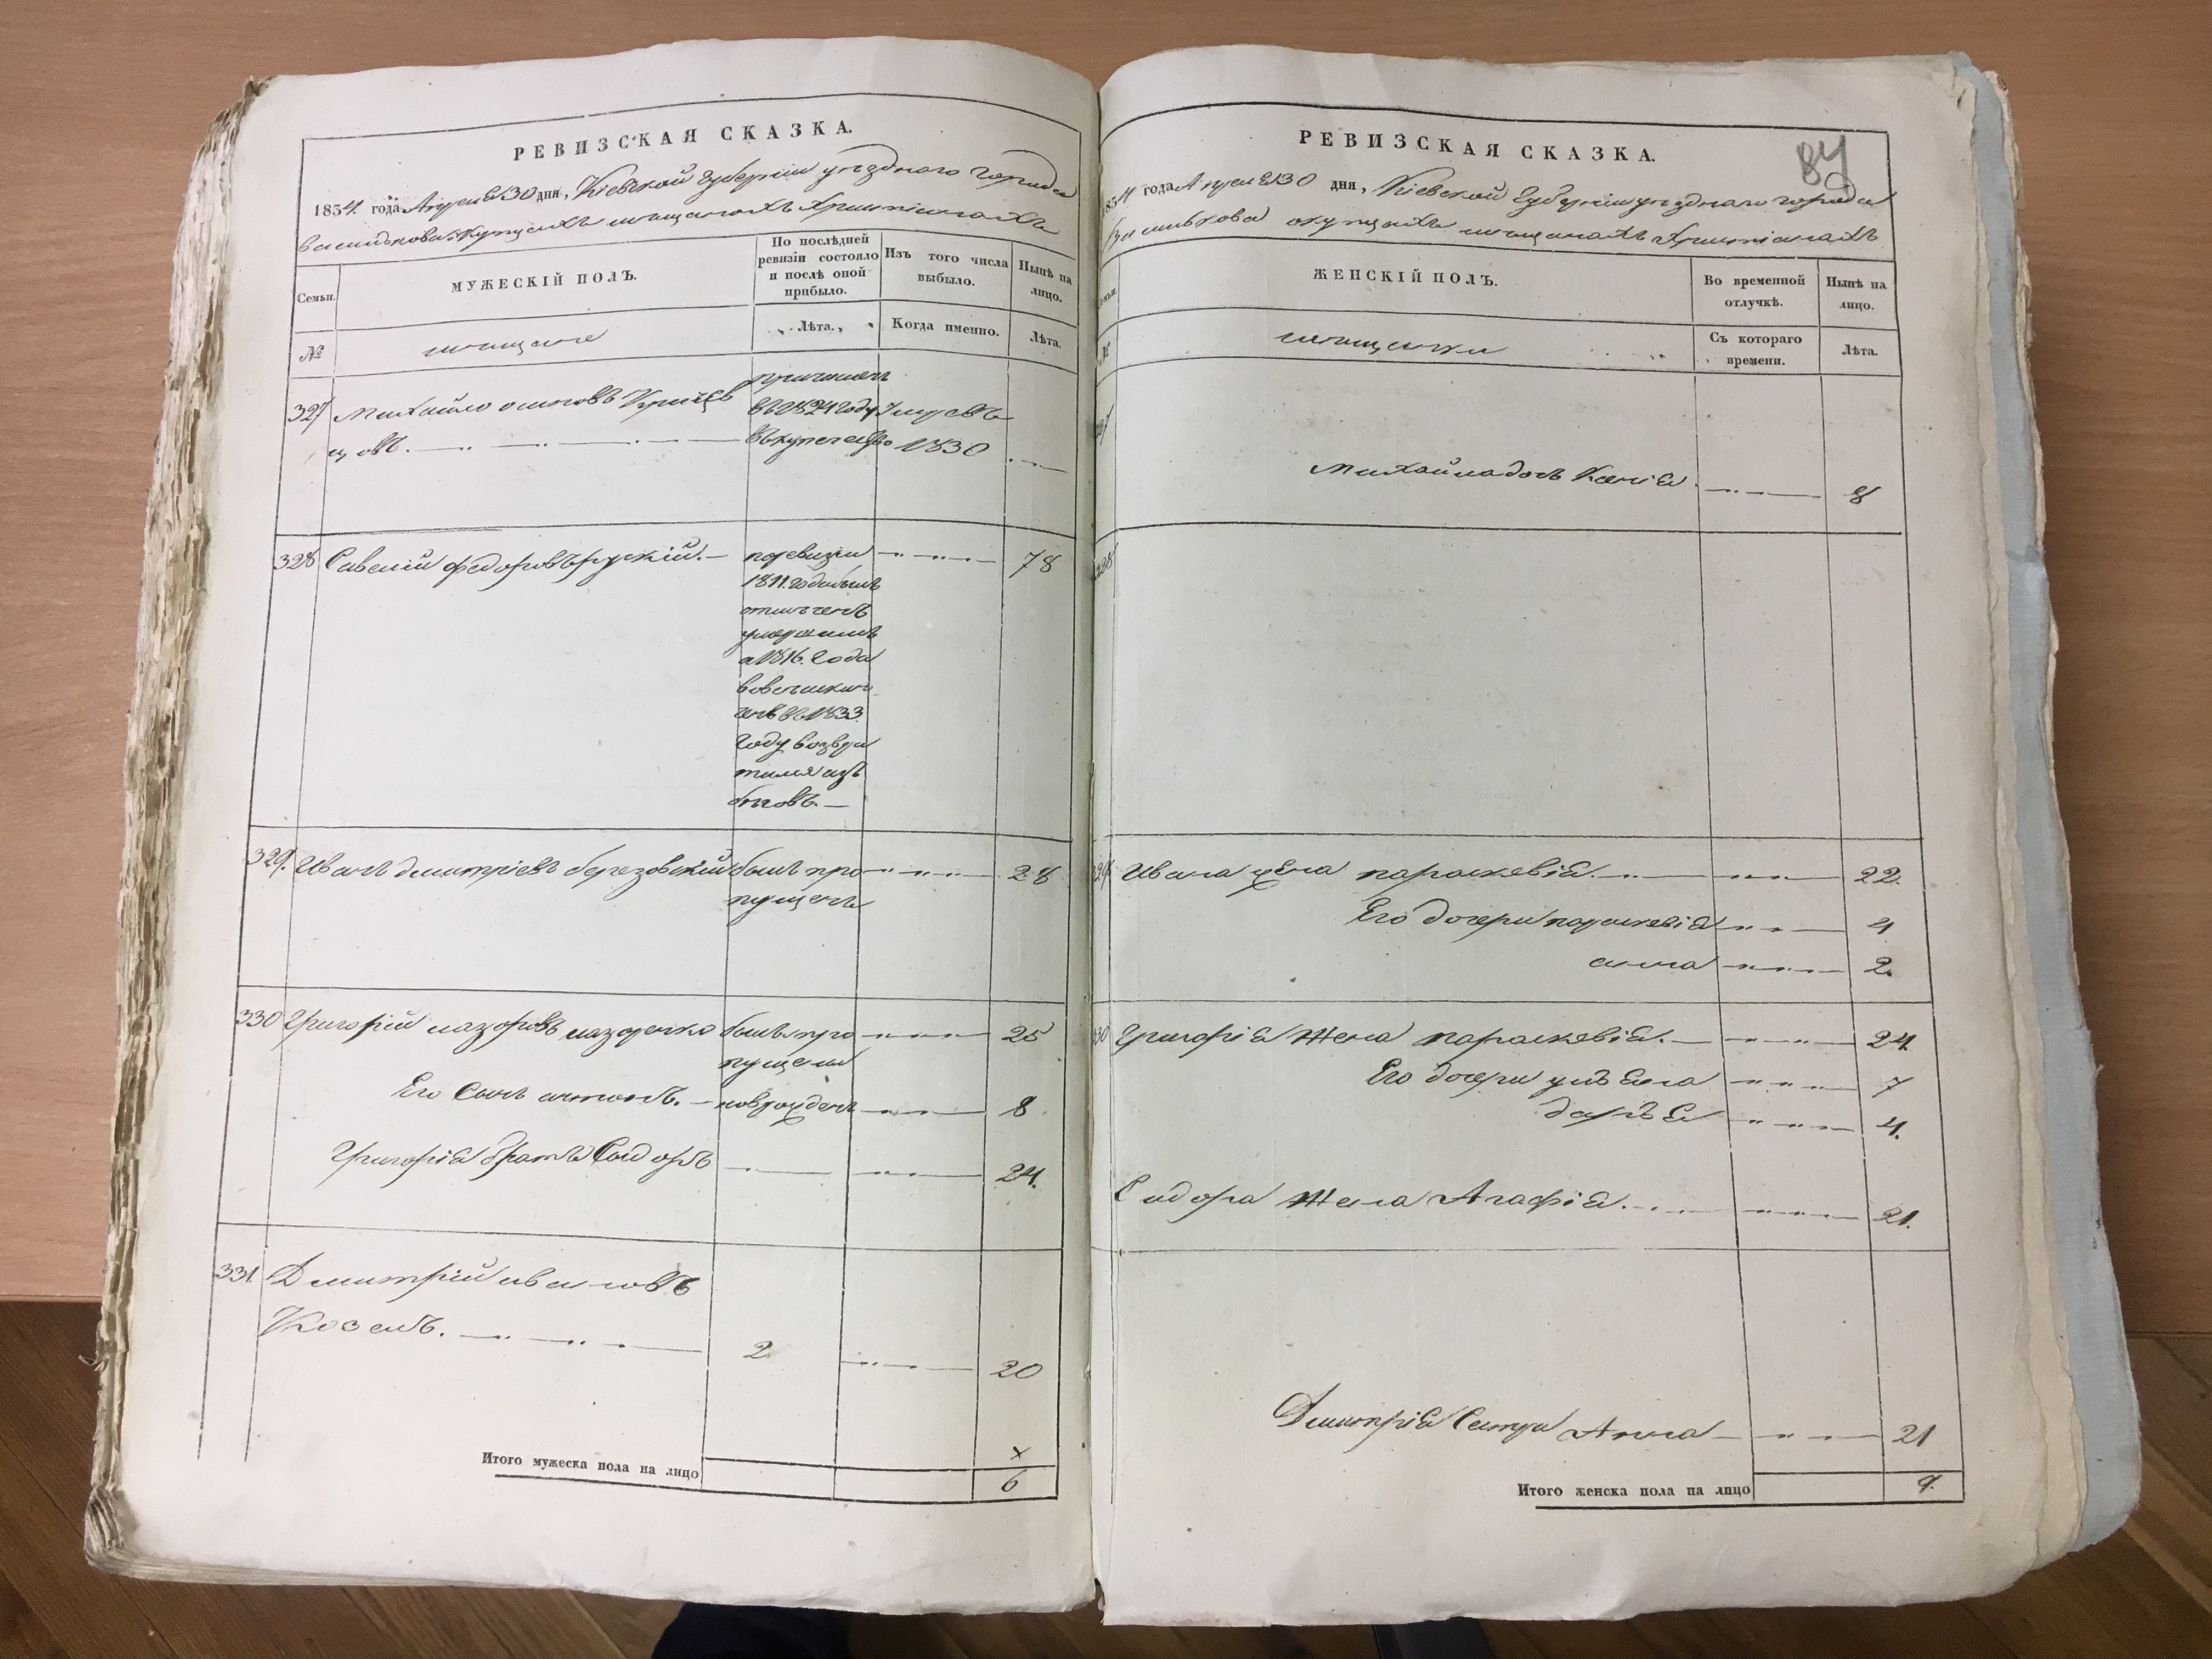 РЕВИЗСКАЯ СКАЗКА.
1834. года Апреля 30 дня, Кіевской Губерніи уезднаго города
Василькова о купцахъ мещанахъ Християнахъ
Семьи.
МУЖЕСКІЙ ПОЛЪ.
По послѣдней ревизіи состояло и послѣ оной прибыло.
Изъ того числа выбыло.
Нынѣ на лицо.
№
мещане
Лѣта.
Когда именно.
Лѣта.
327 Михайло осиповъ
цовъ.
причислен
въ 1824 году умревъ
въ купечество 1830
328 Савелій федоровъ руский. 78
по ревизіи
1811. года былъ
отмеченъ
умершимъ
а 1816. года
въ 1833.
году возвра
тился изъ
бегов.
329. Иванъ дмитріевъ березовский былъ про 28
пущенъ
330 Григорій лазоровъ лазоренко былъ про 25
пущены
Его Сынъ антонъ. новрожденъ 8
Григорія братъ Сидоръ 24.
331. Дмитрій ивановъ
Козелъ. 2 20
Итого мужеска пола на лицо
х
6
РЕВИЗСКАЯ СКАЗКА.
87
1834 года Апреля 30 дня, Кіевской Губерніи уезднаго города
Василькова о купцахъ мещанахъ Християнахъ
ЖЕНСКІЙ ПОЛЪ.
Во временной отлучкѣ.
Нынѣ на лицо.
мещанки
Съ котораго времени.
Лѣта.
Михайла дочь Ксенія 8
Ивана жена параскевія. 22.
Его дочери параскевія 4
анна 2.
Григорія жена параскевія. 24.
Его дочери ульяна 7
дарья 4.
Сидора жена Агафія. 21.
Дмитрія Сестра Анна 21
Итого женска пола на лицо 9.